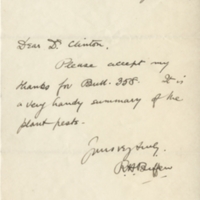 Dear Dr. Clinton.
Please accept my
thanks for Bull. 358. It is
a very handy summary of the
plant pests.
Yours very truly,